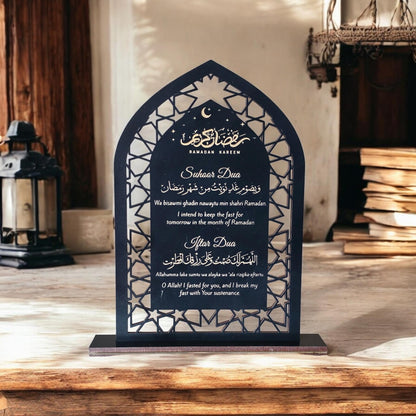 رمضان كريم
RAMADAN KAREEM
Suhoor Dua
وَبِصَوْمِ غَدٍ نَوَيْتُ مِنْ شَهْرِ رَمَضَانَ
Wa bisawmi ghadin nawaytu min shahri Ramadan
I intend to keep the fast for
tomorrow in the month of Ramadan
Iftar Dua
اللَّهُمَّ لَكَ صُمْتُ وَعَلَى رِزْقِكَ أَفْطَرْتُ
Allahumma laka sumtu wa alayka wa 'ala rizqika aftartu
O Allah! I fasted for you, and I break my
fast with Your sustenance.